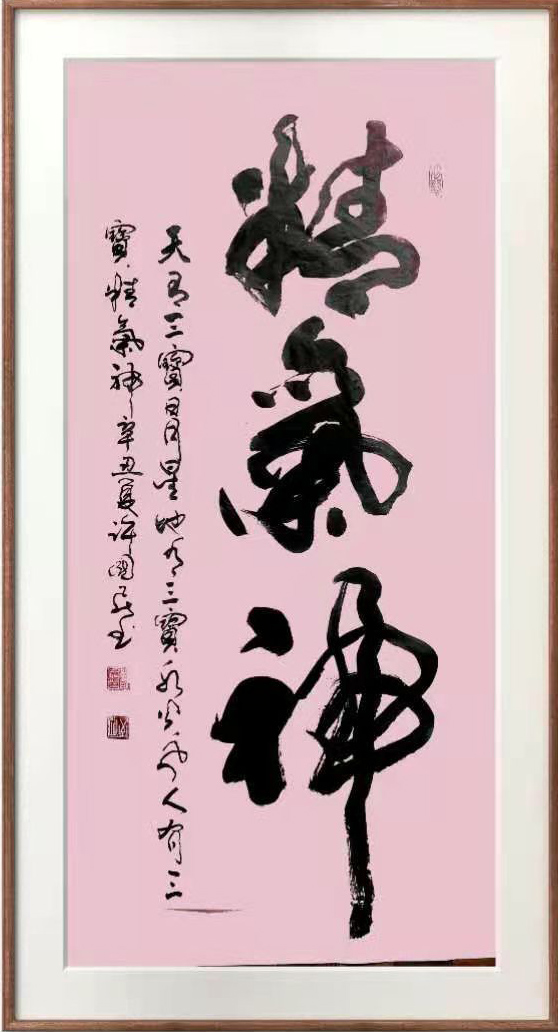 精氣神
天有三寶日月星地有三寶水火風人有三
寶精氣神辛丑夏許國
书